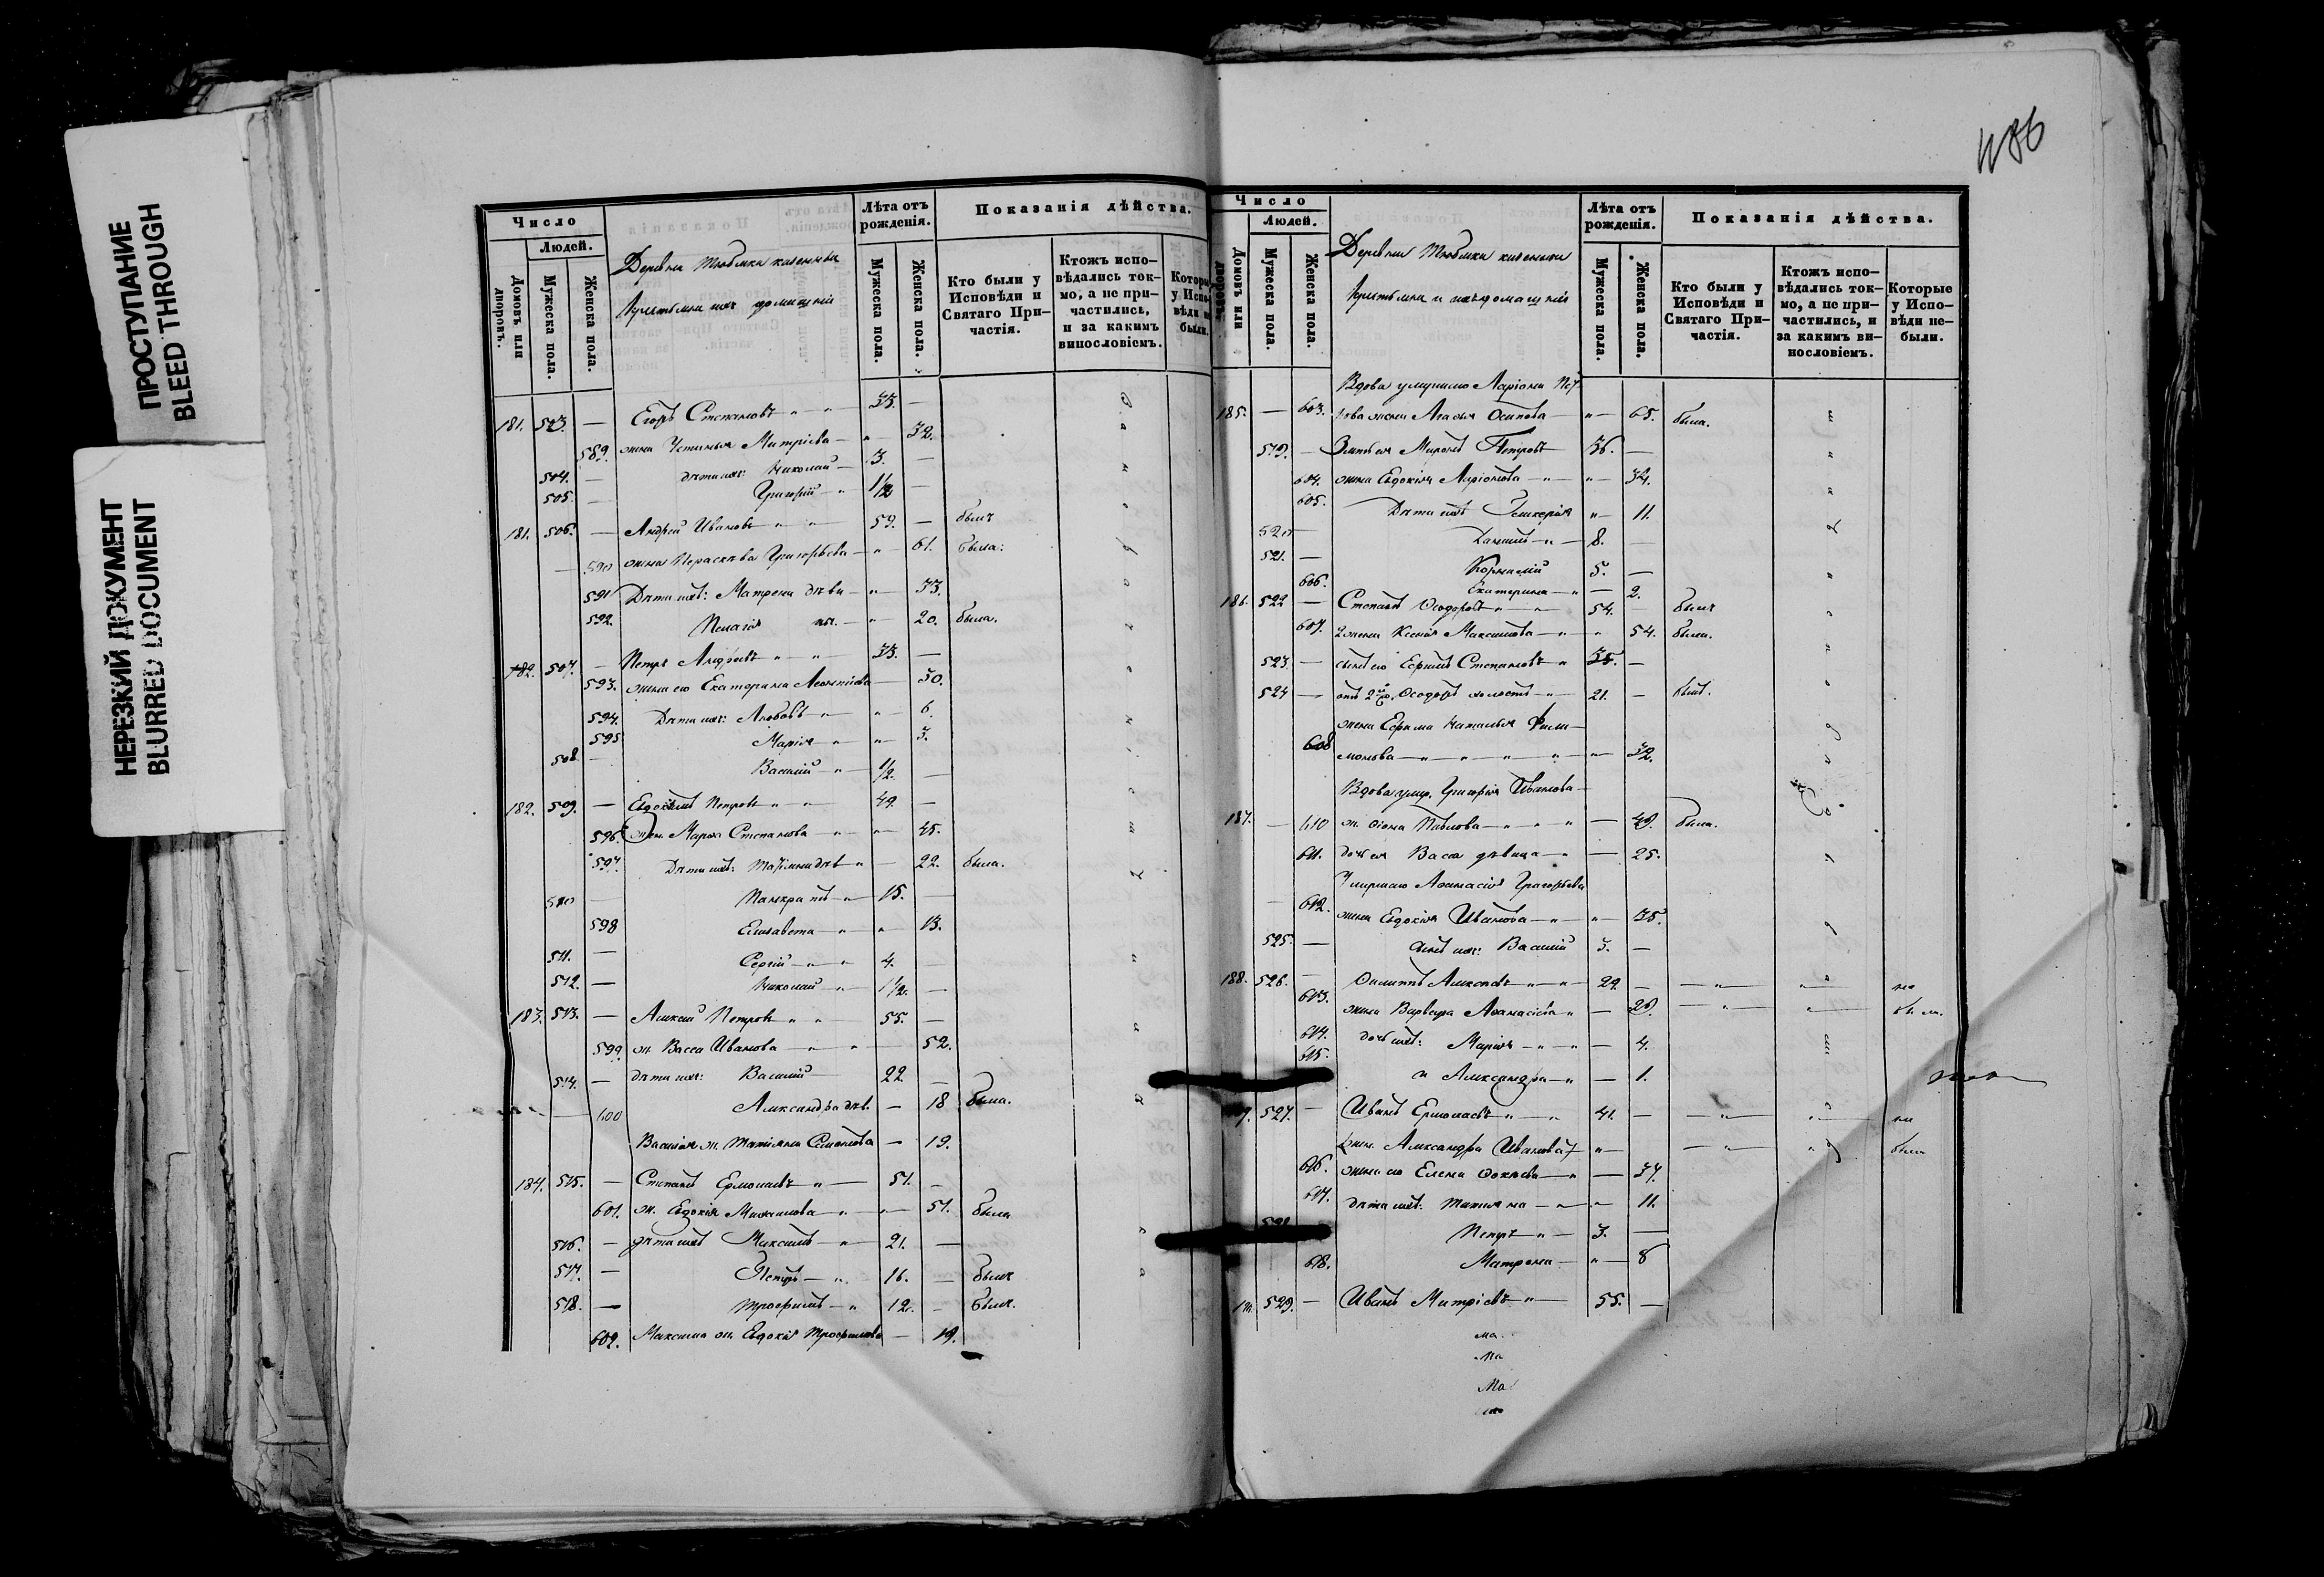 ПРОСТУПАНИЕ
BLEED THROUGH
НЕРЕЗКИЙ ДОКУМЕНТ
BLURRED DOCUMENT
Число
Людей.
Домовъ или дворовъ.
Мужеска пола.
Женска пола.
Деревни
Лѣта отъ рожденія.
Мужеска пола.
Женска пола.
Показанія дѣйства.
Кто были у Исповѣди и Святаго Причастія.
Ктожъ исповѣдались токмо, а не причастились, и за какимъ винословіемъ.
181. 503. — Егоръ Степановъ „ „ 33. —
589. жена Устинья Митріева — „ 32.
504. — дѣти ихъ: Николай — 3. —
505. — Григорій „ 1/2 —
181. 506. — Андрей Ивановъ „ „ 59. — былъ
590 жена Параскева Григорьева — „ 61. была.
591 Дѣти ихъ: Матрена дѣви — „ 33.
592. Пелагія — „ 20. была.
182. 507. — Петръ Андреевъ „ „ 33. —
593. жена его Екатерина Леонтіева — 30.
594. Дѣти ихъ: Любовь „ „ 6.
595 Марія „ „ 3.
508. — Василій „ 1/2. —
182. 509. — Евдокимъ Петровъ „ „ 49. —
596. жен. Марѳа Степанова „ „ 45.
597. Дѣти ихъ: Татіяна дѣв „ — 22. была.
510 — Панкратъ „ 15. —
598 Елизавета „ „ 13.
511. — Сергій „ „ 4. —
512. — Николай „ 1 1/2. —
183. 513. — Алексій Петровъ „ „ 55. —
599. ж. Васса Иванова „ „ 52.
514. — дѣти ихъ: Василій 22. —
600 Александра дѣв. — 18 была.
Василія ж. Татіяна Симонова — 19.
184. 515. — Степанъ Ермолаевъ „ — 51. —
601. ж. Евдокія Михаилова „ „ 51. была
516. — дѣти ихъ Максимъ „ 21. —
517. — Петръ „ 16. — былъ
518. — Трофимъ „ 12. — былъ.
602. Максима ж. Евдокія Трофимова — 19.
486
Число
Людей.
Домовъ или
Мужеска пола.
Женска пола.
Деревни
Лѣта отъ рожденія.
Мужеска пола.
Женска пола.
Показанія дѣйства.
Кто были у Исповѣди и Святаго Причастія.
Ктожъ исповѣдались токмо, а не причастились, и за какимъ винословіемъ.
Которые у Исповѣди не были.
Вдова умершаго Ларіона Пет
185. — 603. рова жена Агафья Осипова — „ 65. была.
519. — Зять ея Миронъ Петровъ 36. —
604. жена Евдокія Ларіонова „ „ 34.
605. Дѣти ихъ Гликерія „ 11.
520 — Даніилъ „ 8. —
521. — Корнилій 5. —
606. Екатерина „ — 2.
186. 522 — Степанъ Ѳеодоровъ „ „ 54. — былъ
607. 2 жена Ксенія Максимова „ „ 54. была.
523. — сынъ его Ефимъ Степановъ „ 35. —
524 — Ѳеодоръ холостъ „ 21. — былъ.
жена Ефима Наталья Фили
608 монова „ „ „ „ 32.
Вдова умер. Григорія Иванова
187. — 610 ж. Ѳіона Павлова „ „ „ — 49. была.
611. дочь ея Васса дѣвица „ — 25.
Умершаго Аѳанасія Григорьева
612. жена Евдокія Иванова „ „ 35.
525. — сынъ ихъ: Василій 3. —
188. 526. — Филиппъ Алексѣевъ „ „ 29. — не
613. жена Варвара Аѳанасіева „ — 29. были.
614. дочь ихъ: Марія „ „ — 4.
615. и Александра „ — 1.
527. — Иванъ Ермолаевъ „ „ 41. — не
жен. Александра Иванова „ были
616. жена его Елена Фокіева „ — 37.
617. дѣти ихъ: Татьяна „ „ 11.
528 Петръ „ 3. —
618. Матрона „ — 8
529. — Иванъ Митріевъ „ 55. —